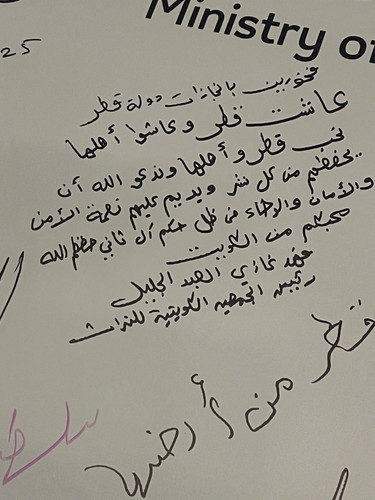 Ministry of
25
فخورين بانجازات دولة قطر
عاشت قطر وعاشوا أهلها
نحب قطر وأهلها وندعو الله أن
يحفظهم من كل شر ويديم عليهم نعمة الأمن
والأمان والرخاء في ظل حكم آل ثاني حفظهم الله
محبكم من الكويت
فهد غازي العبد الجليل
رئيس الجمعية الكويتية للتراث
قطر من أرضها